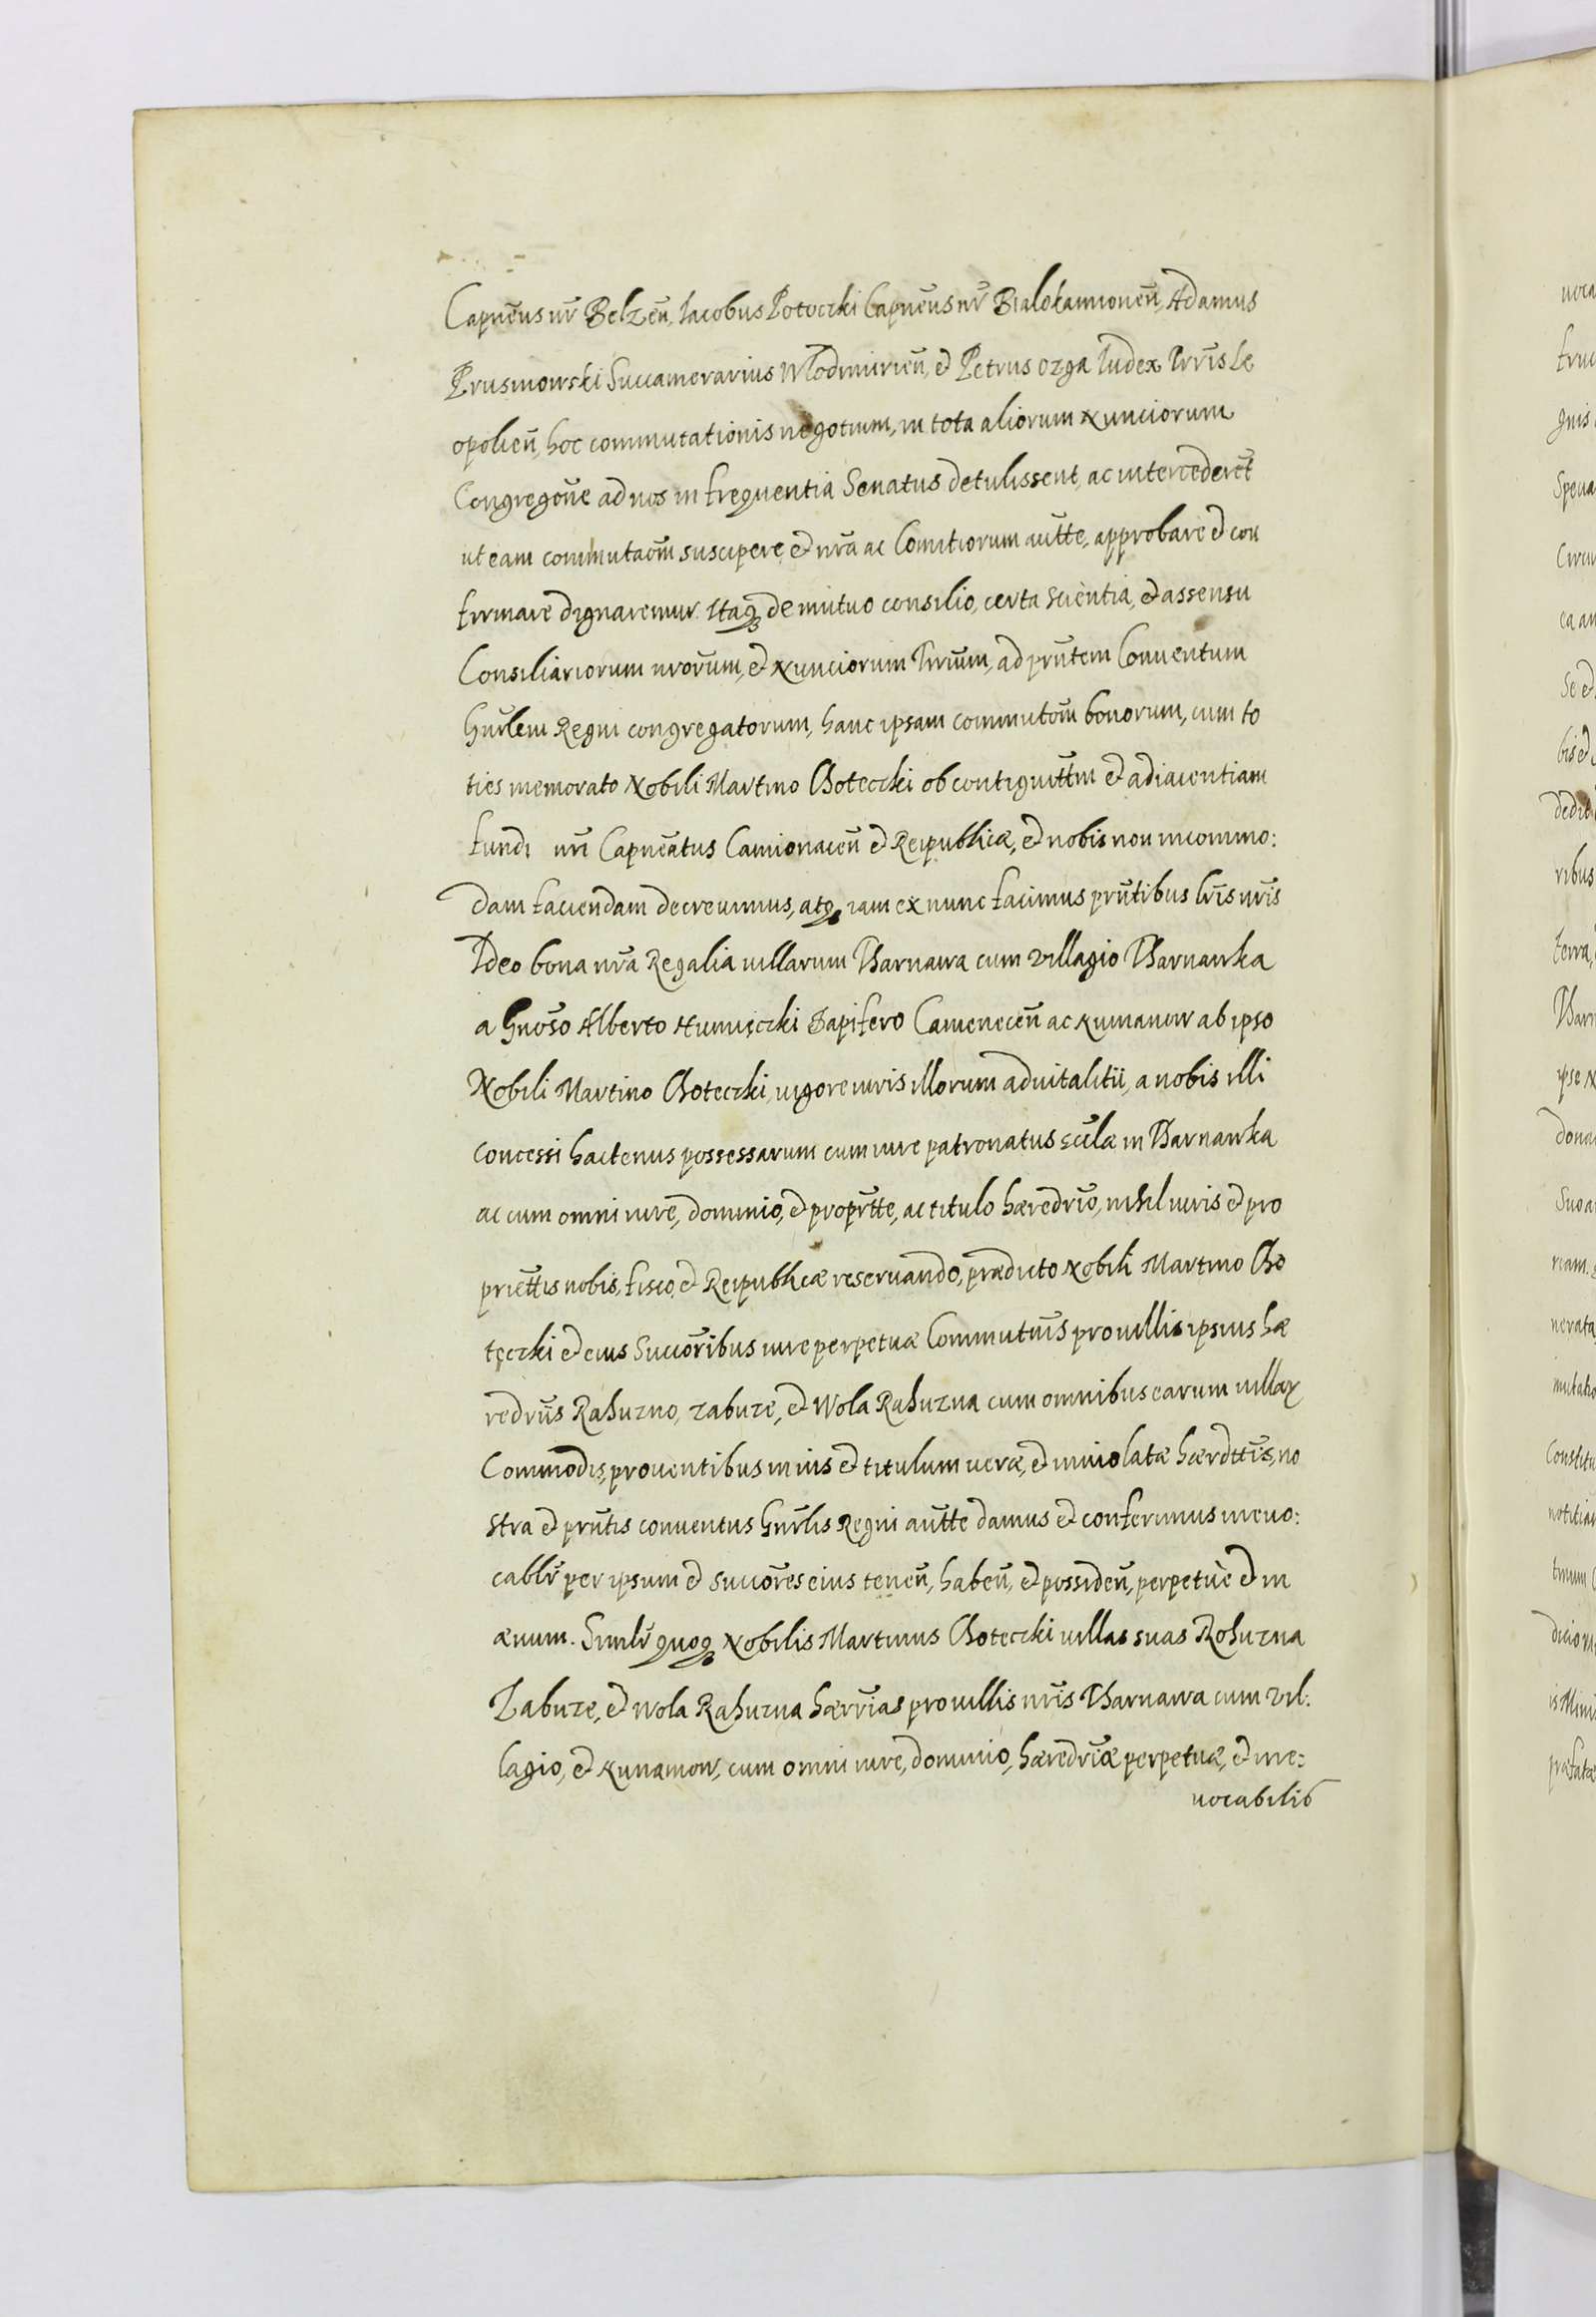 Capneūs nr̄ Belzen̄, Iacobus Potoczki Capneūs nr̄ Bialokamionen̄, Adamus
Prusinowski Succamerarius Wlodimirien̄, et Petrus Ozga Iudex Trrīs Le
opolien̄, hoc commutationis negotium, in tota aliorum Nunciorum
Congregoñe ad nos in frequentia Senatus detulissent, ac intercederēt
ut eam commutaom̄ suscipere, et nrā ac Comitiorum autt̄e, approbare et con
firmare dignaremur. Itaq3 de mutuo consilio, certa scientia, et assensu
Consiliariorum nrōrum, et Nunciorum Trrīum, ad prn̄tem Conuentum
Gnr̄lem Regni congregatorum, hanc ipsam commutom̄ bonorum, cum to
ties memorato Nobili Martino Choteczki ob contiguitt̄m et adiacentiam
fundi nrī Capneātus Camionacen̄ et Reipublicæ, et nobis non incommo:
dam faciendam decreuimus, atq3 iam ex nunc facimus prn̄tibus lrīs nrīs
Ideo bona nrā Regalia uillarum Tharnawa cum villagio Tharnawka
a Gnōso Alberto Humięczki Dapifero Camenecen̄ ac Kunanow ab ipso
Nobili Martino Choteczki, uigore iuris illorum aduitalitii, a nobis illi
concessi hactenus possessarum cum iure patronatus ecc̄læ in Tharnawka
ac cum omni iure, dominio, et propr̄tte, ac titulo hæredr̄io, nihil iuris et pro
priett̄is nobis, fisco, et Reipublicæ reseruando, prædicto Nobili Martino Cho
tęczki et eius Succōribus iure perpetuæ Commutnīs pro uillis ipsius hæ
redr̄iis Rahuzno, Zabuze, et Wola Rahuzna cum omnibus earum uillar
Commodis, prouentibus in ius et titulum ueræ, et inuiolatæ hærdtt̄is, no
stra et prn̄tis conuentus Gnr̄lis Regni autt̄e damus et conferimus irreuo:
cablr̄ per ipsum et succōres eius tenen̄, haben̄, et possiden̄, perpetuè et in
æuum. Similr̄ quoq3 Nobilis Martinus Choteczki uillas suas Rohuzna
Zabuze, et Wola Rahuzna hærrīas pro uillis nrīs Tharnawa cum vil:
lagio, et Kunanow, cum omni iure, dominio, hæredr̄iæ perpetuæ, et irre:
uocabilis